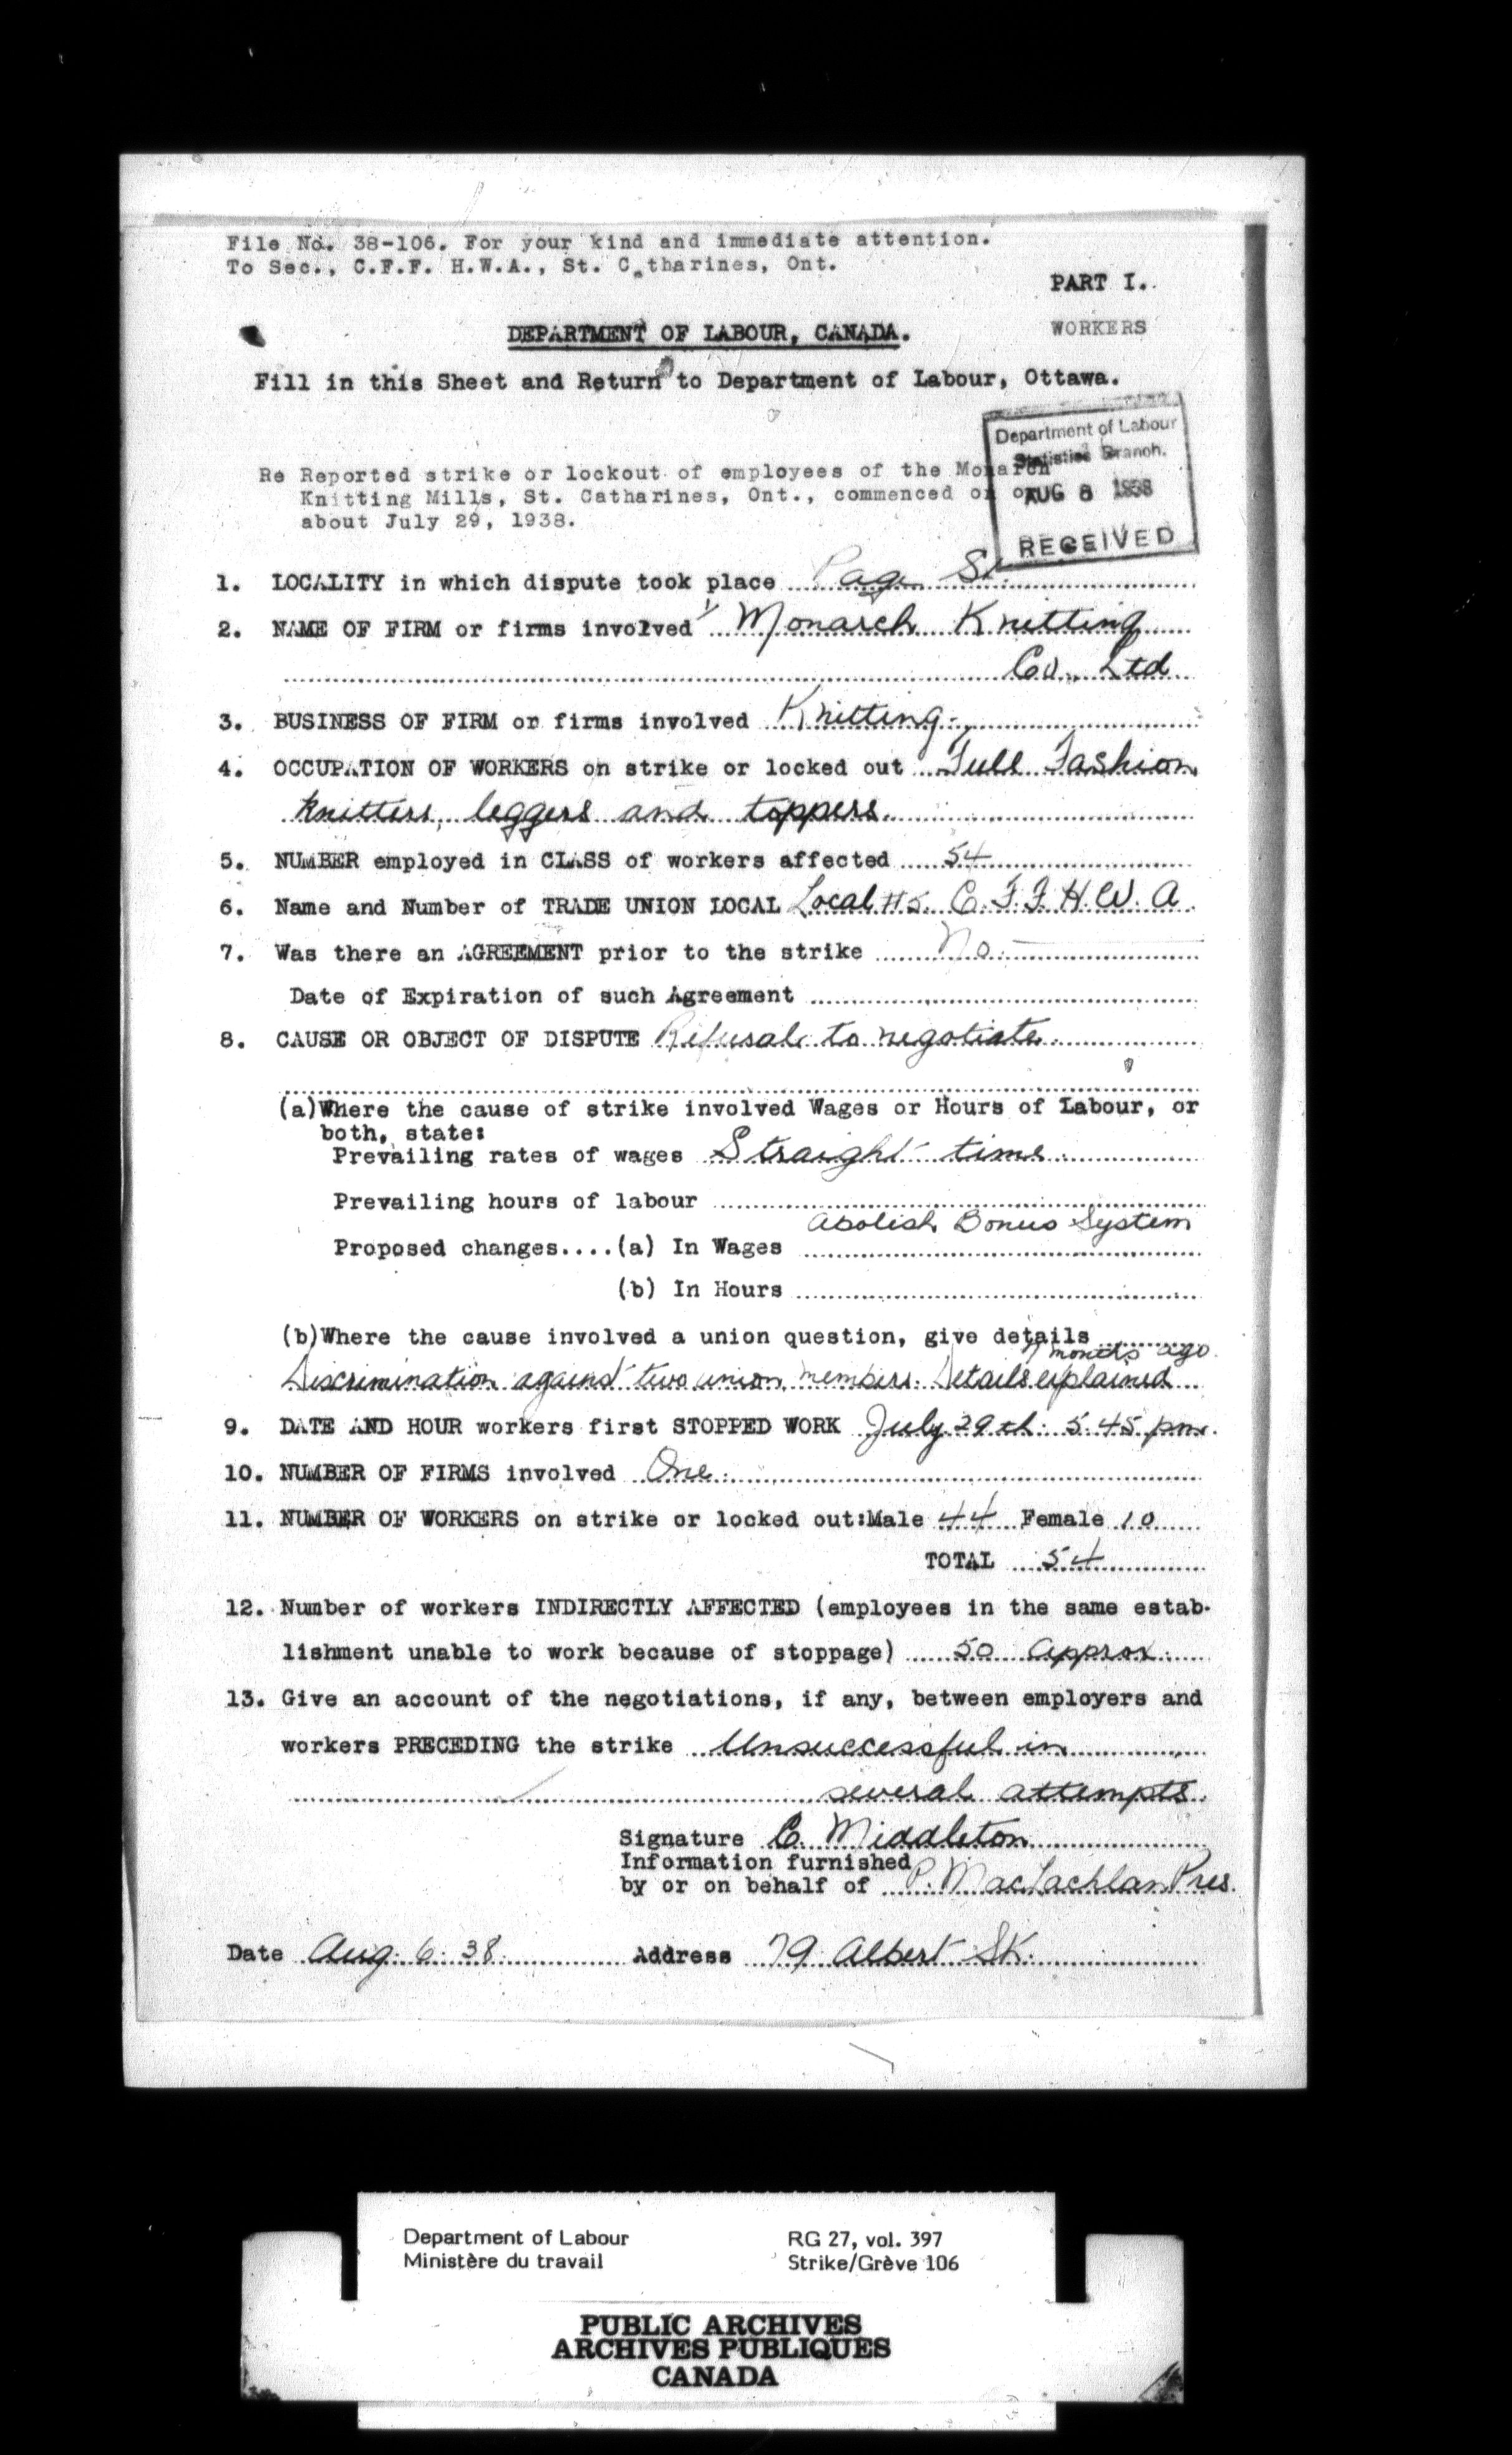 File No. 38-106. For your kind and immediate attention.
To Sec., C.F.F. H.W.A., St. Catharines, Ont.
PART I.
WORKERS
DEPARTMENT OF LABOUR, CANADA.
Fill in this Sheet and Return to Department of Labour, Ottawa.
Department of Labour
Statistics Branch.
AUG 8 1938
RECEIVED
Re Reported strike or lockout of employees of the Monarch
Knitting Mills, St. Catharines, Ont., commenced on or
about July 29, 1938.
1. LOCALITY in which dispute took place Page St.
2. NAME OF FIRM or firms involved Monarch Knitting
Co., Ltd
3. BUSINESS OF FIRM or firms involved Knitting.
4. OCCUPATION OF WORKERS on strike or locked out Full Fashion
Knitters, leggers and toppers.
5. NUMBER employed in CLASS of workers affected 54
6. Name and Number of TRADE UNION LOCAL Local #5. C.F.F.H.W.A.
7. Was there an AGREEMENT prior to the strike No.
Date of Expiration of such Agreement
8. CAUSE OR OBJECT OF DISPUTE Refusal to negotiate.
(a) Where the cause of strike involved Wages or Hours of Labour, or
both, state:
Prevailing rates of wages Straight time.
Prevailing hours of labour
Abolish Bonus System
Proposed changes....(a) In Wages
(b) In Hours
(b) Where the cause involved a union question, give details
months ago.
Discrimination against two union members. Details explained
9. DATE AND HOUR workers first STOPPED WORK July 29th. 5.45 pm.
10. NUMBER OF FIRMS involved One.
11. NUMBER OF WORKERS on strike or locked out: Male 44 Female 10
TOTAL 54
12. Number of workers INDIRECTLY AFFECTED (employees in the same estab-
lishment unable to work because of stoppage) 50 Approx.
13. Give an account of the negotiations, if any, between employers and
workers PRECEDING the strike Unsuccessful in
several attempts.
Signature C. Middleton
Information furnished
by or on behalf of P. MacLachlan Pres.
Date Aug. 6. 38. Address 79 Albert St.
Department of Labour RG 27, vol. 397
Ministère du travail Strike/Grève 106
PUBLIC ARCHIVES
ARCHIVES PUBLIQUES
CANADA